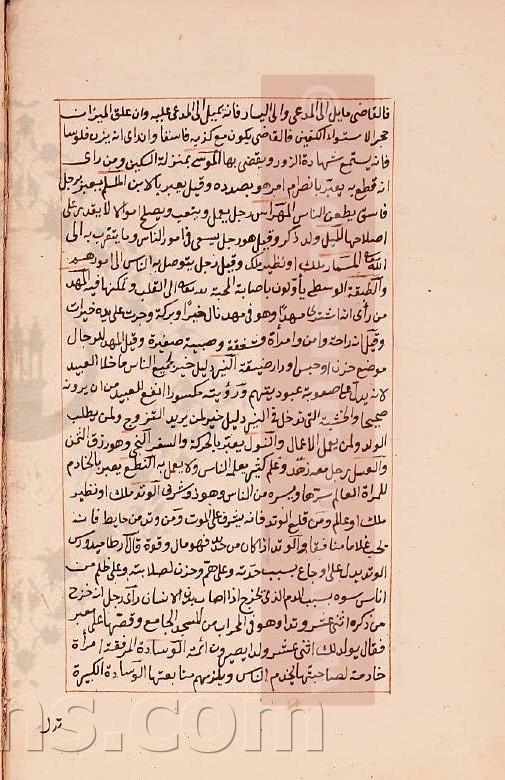 فالقاضى مايل الى المدعى والى اليسار فانه يميل الى المدعى عليه وان علق الميزان
حجرا لاستواء الكفين فالقاضى يكون مع كذبه فاسقا وان رأى انه يزن فلوسا
فانه يستمع شهادة الزور ويقضى بها الموسى بمنزلة السكين ومن رأى
انه قطع به يعتبر بانصرام امر هو بصدده وقيل يعبر بالابن الملم يعبر برجل
فاسق يطعن الناس المهراس رجل يعمل ويتعب ويصلح اموالا لا يقدر على
اصلاحها الليل ولد ذكر وقيل هو رجل يسعى فى امور الناس وما يتقرب به الى
الله المسمار ملك او نظير ملك وقيل رجل يتوصل به الناس الى امورهم
والطبقة الوسطى يأولون باصابة المحبة الى القلب وتمكنها فيه المهد
من رأى انه اشترى مهدا وهو فى مهد نال خيرا وبركة وجرت على يده خيرات
وقيل انه راحة وامن وامرأة وصبية صغيرة وقيل المهد للرجال
موضع حزن او حبس او دار ضيقة النير دليل خير لجميع الناس ما خلا العبيد
لانه يدل على صعوبة عبوديتهم ورؤيته مكسورا انفع للعبيد من ان يرونه
صحيحا والخشبة التى تدخل فى النير دليل خير لمن يريد التزوج ولمن يطلب
الولد ولمن يعمل الاعمال والنول يعبر بالحركة والسفر وهو رزق الثمن
والغسل رجل معه زهد وعلم كثير يعلمه الناس ولا يعمل به النطع يعبر بالخادم
للمرأة العالم سرها ويسره من الناس وهو ذو شرف الوتد ملك او نظير
ملك او عالم ومن قلع الوتد فانه يشرف على الموت ومن وتد من حايط فانه
يحب غلاما منافقا والوتد اذا كان من حديد فهو مال وقوة قال ارطاميدورس
الوتد يدل على اوجاع بسبب حدته وعلى هم وحزن لصلابته وعلى ظلم من
اناس سوء بسبب الدم الذى يخرج اذا اصاب بدن الانسان رأى رجل انه خرج
من ذكره اثنى عشر وتدا وهو فى المحراب من المسجد الجامع وقصها على معبر
فقال يولد لك اثنى عشر ولدا يصيرون ائمة الوسادة المرفقة امرأة
خادمة لصاحبتها لخدم الناس ويلزمهم متابعتها الوسادة الكبيرة
تدل
ns.com